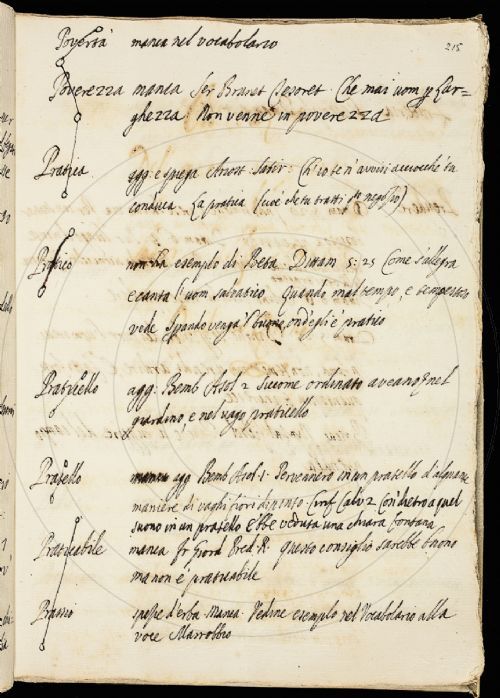 215
Povertà manca nel vocabolario
Poverezza manca Ser Brunet Tesoret. Che mai uom p Lar=
ghezza. Non venne in poverezza
Pratica agg: e spiega Ariost. Satir: Ch'io te n'avvisi acciocchè tu
conduca. La pratica (cioè che tu tratti negozio)
Pratico non ha esempio di Poeta. Dittam 5: 25 Come s'allegra
e canta l'uom salvatico. Quando mal tempo, e tempestoso
vede Sperando venga 'l buono, ond'egli è pratico
Praticello agg: Bemb Asol 2 Siccome ordinato aveano nel
giardino, e nel vago praticello
Pratello manca agg Bemb Asol. 1. Pervennero in un pratello d'alquante
maniere di vaghi fiori dipinto Calv 2 Con dietro a quel
suono in un pratello Ebbe veduta una chiara fontana
Praticabile manca Fr Giord Pred R. Questo consiglio sarebbe buono
ma non è praticabile
Prassio spezie d'erba. Manca. Vedine esempio nel Vocabolario alla
voce Marrobbio